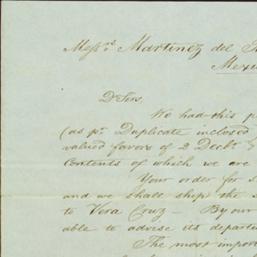 Messrs. Martinez del
Mexi
D Sirs,
We had this p
(as pr. Duplicate inclosed
valued favors of 2 Decbr.
Contents of which we are
Your order for s
and we shall ship the s
to Vera Cruz — By our
able to advise its depart
The most impor